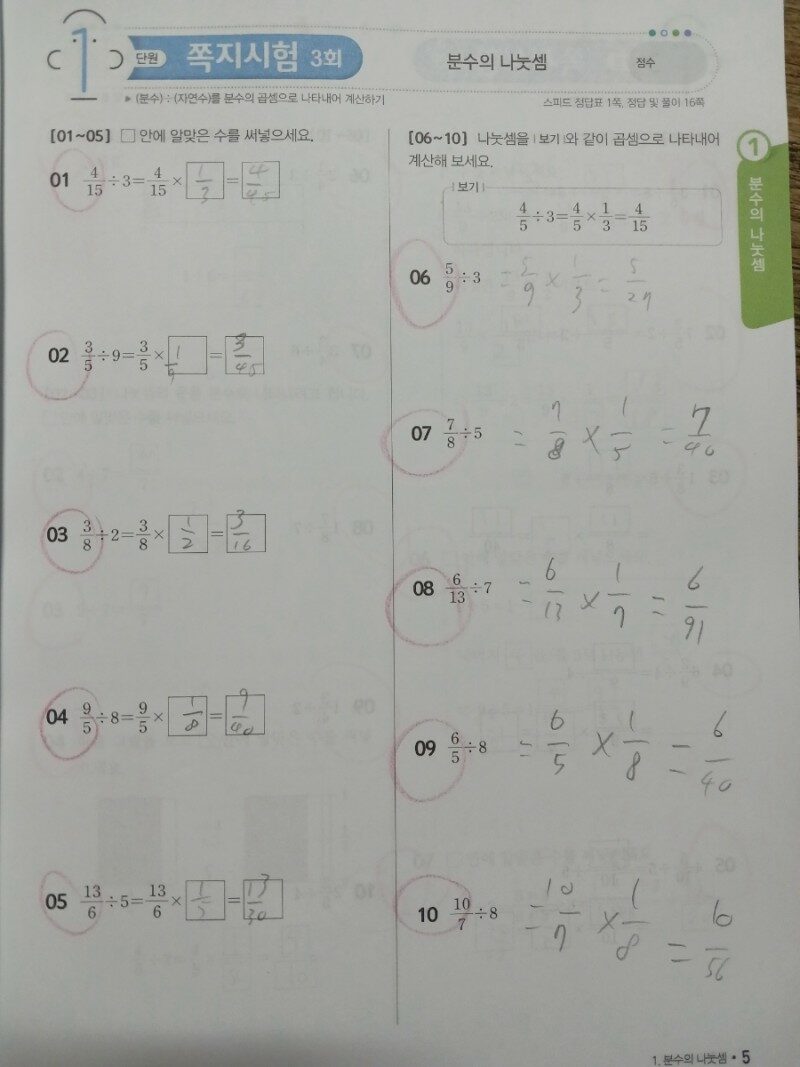 1 단원 쪽지시험 3회 분수의 나눗셈 점수
▸ (분수) ÷ (자연수)를 분수의 곱셈으로 나타내어 계산하기
스피드 정답표 1쪽, 정답 및 풀이 16쪽
[01~05] □ 안에 알맞은 수를 써넣으세요.
01 4/15÷3=4/15×1/3=4/45
02 3/5÷9=3/5×1/9=3/45
03 3/8÷2=3/8×1/2=3/16
04 9/5÷8=9/5×1/8=9/40
05 13/6÷5=13/6×1/5=13/30
[06~10] 나눗셈을 |보기|와 같이 곱셈으로 나타내어
계산해 보세요.
|보기|
4/5÷3=4/5×1/3=4/15
06 5/9÷3 =5/9×1/3=5/27
07 7/8÷5 =7/8×1/5=7/40
08 6/13÷7 =6/13×1/7=6/91
09 6/5÷8 =6/5×1/8=6/40
10 10/7÷8 =10/7×1/8=/56
1
분수의 나눗셈
1. 분수의 나눗셈 • 5